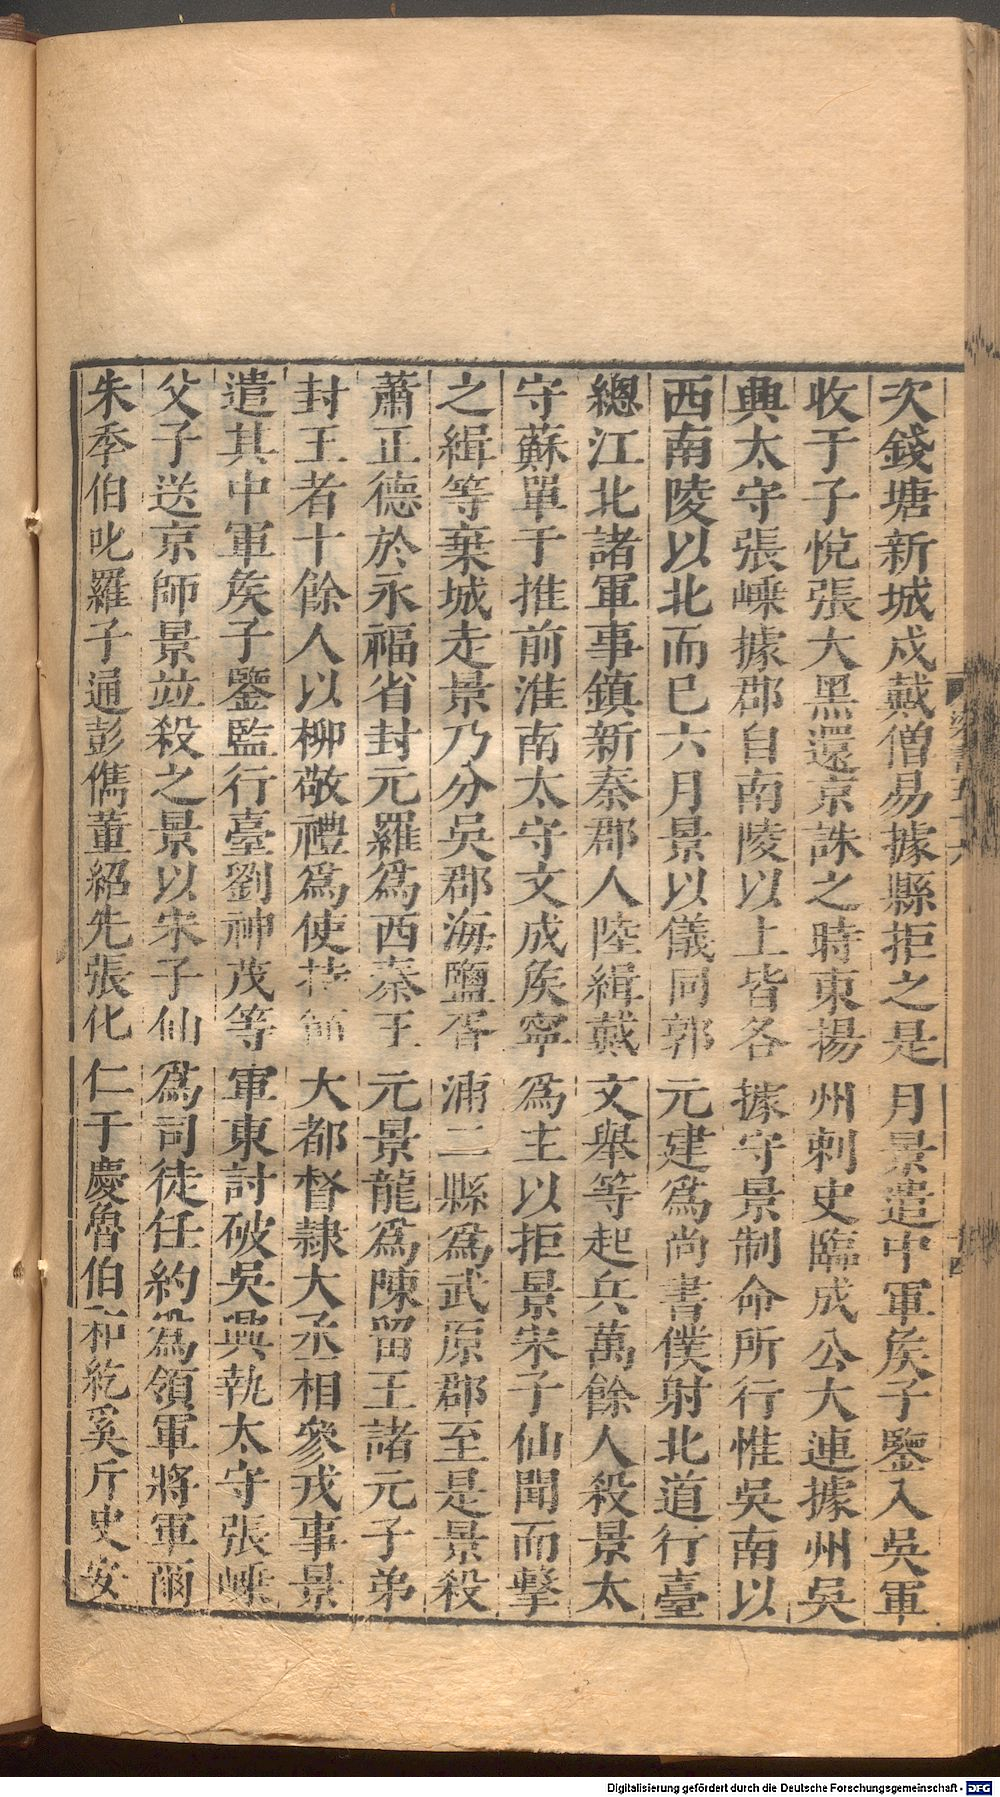 次錢塘新城戍戴僧易據縣拒之是月景遣中軍矦子鑒入吳軍
收于子悅張大黑還京誅之時東揚州刺史臨成公大連據州吳
興太守張嵊據郡自南陵以上皆各據守景制命所行惟吳南以
西南陵以北而已六月景以儀同郭元建爲尚書僕射北道行臺
總江北諸軍事鎮新秦郡人陸緝戴文舉等起兵萬餘人殺景太
守蘇單于推前淮南太守文成矦寧爲主以拒景宋子仙聞而擊
之緝等棄城走景乃分吳郡海鹽胥浦二縣爲武原郡至是景殺
蕭正德於永福省封元羅爲西秦王元景龍爲陳留王諸元子弟
封王者十餘人以柳敬禮爲使持節大都督隷大丞相參戎事景
遣其中軍矦子鑒監行臺劉神茂等軍東討破吳興執太守張嵊
父子送京師景竝殺之景以宋子仙爲司徒任約爲領軍將軍爾
朱季伯叱羅子通彭儁董紹先張化仁于慶魯伯和紇奚斤史安
梁書五十六
十四
Digitalisierung gefördert durch die Deutsche Forschungsgemeinschaft - DFG